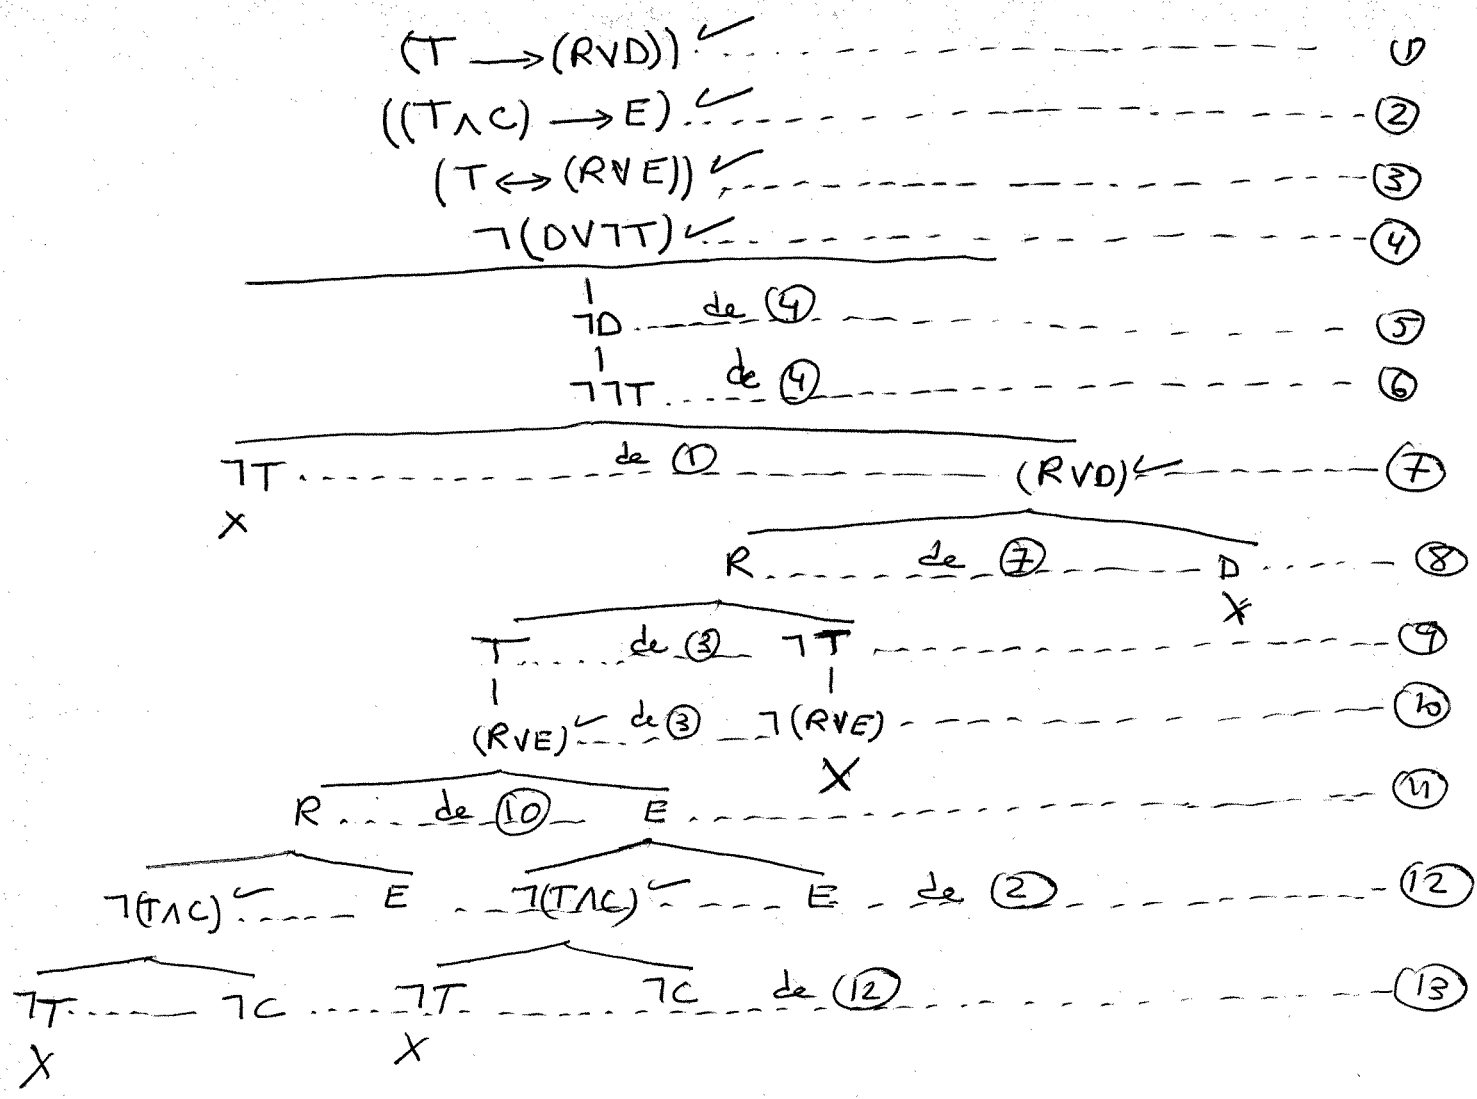 (T → (R∨D)) ✓ ①
((T∧C) → E) ✓ ②
(T ↔ (R∨E)) ✓ ③
¬(D∨¬T) ✓ ④
¬D de ④ ⑤
¬¬T de ④ ⑥
¬T de ① (R∨D) ✓ ⑦
X
R de ⑦ D ⑧
X
T de ③ ¬T ⑨
(R∨E) ✓ de ③ ¬(R∨E) ⑩
X
R de ⑩ E ⑪
¬(T∧C) ✓ E ¬(T∧C) ✓ E de ② ⑫
¬T ¬C ¬T ¬C de ⑫ ⑬
X X